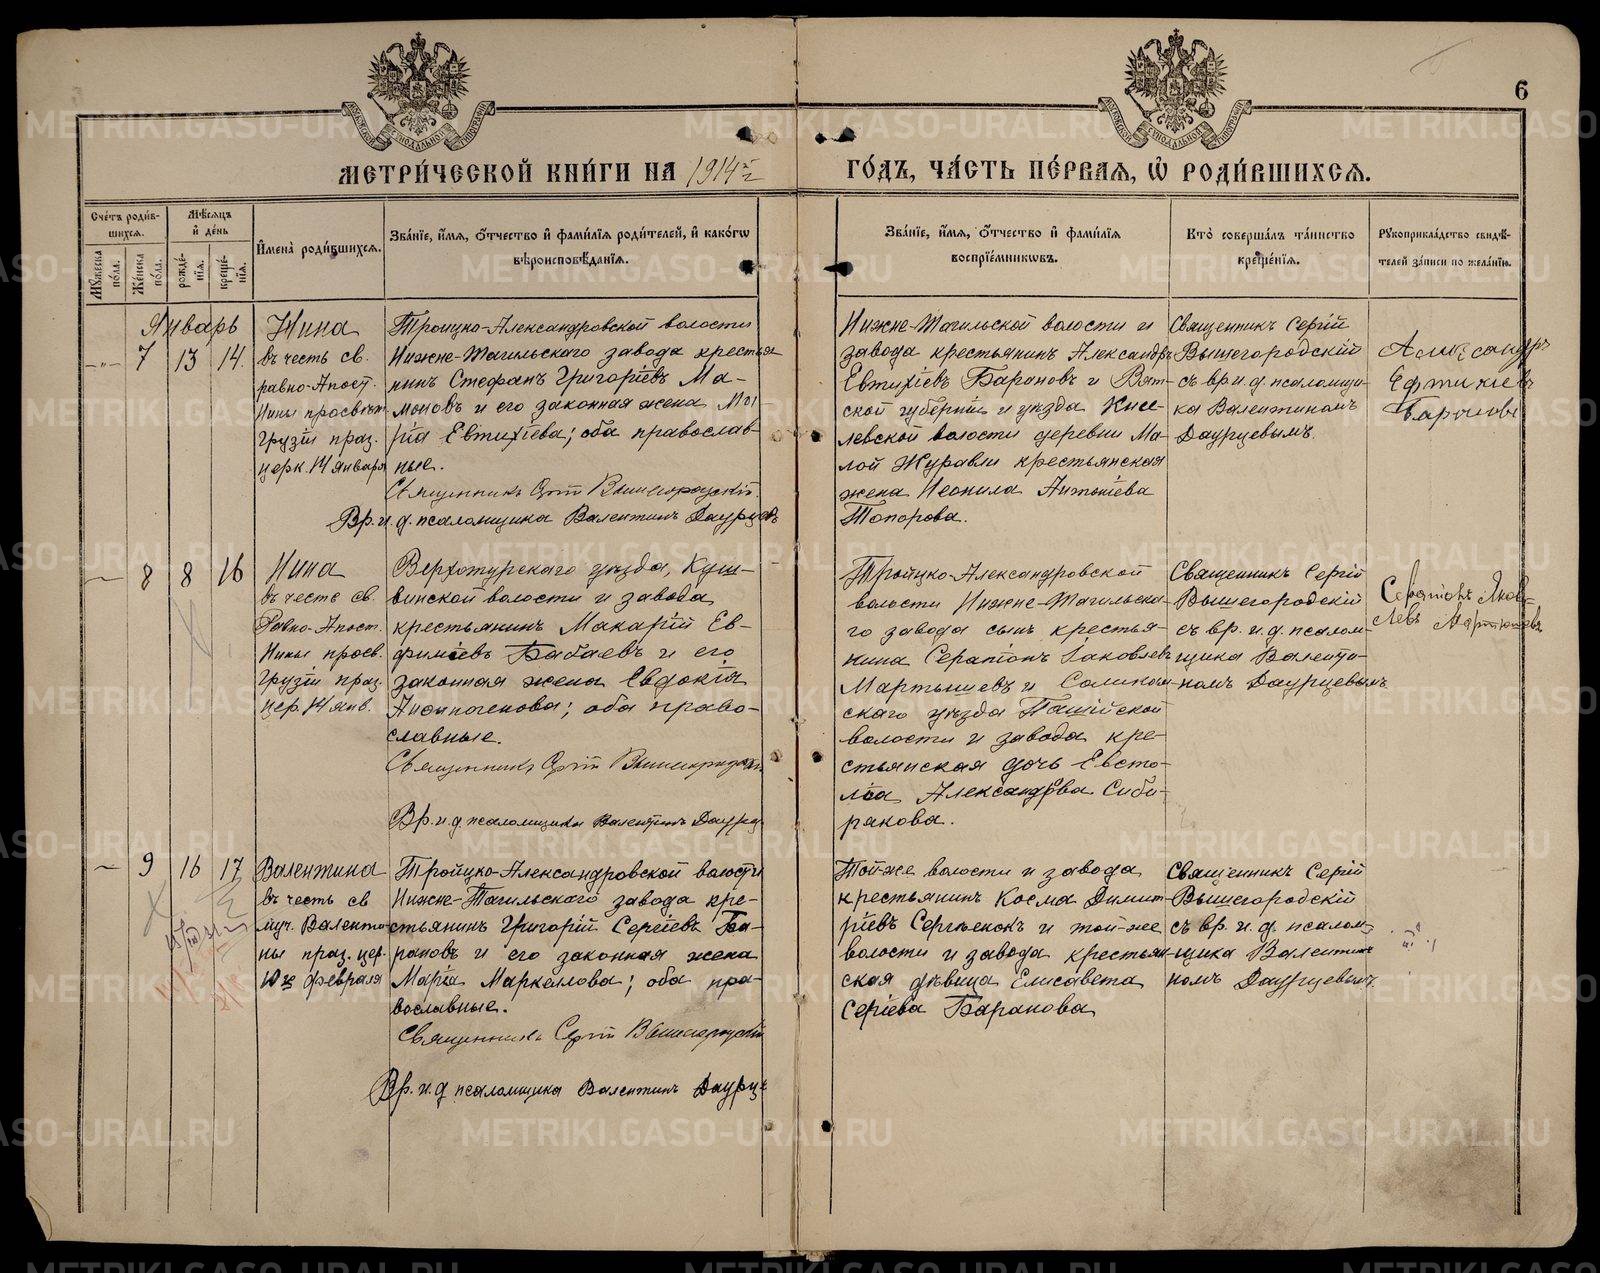 6
МЕТРИ́ЧЕСКОЙ КНИ́ГИ НА 1914й
ГО́ДЪ, ЧА́СТЬ ПЕ́РВАѦ, Ѽ РОДИ́ВШИХСѦ.
Сче́тъ роди́в-
шихсѧ.
Мужеска по́ла.
Же́нска по́ла.
Мѣ́сѧцъ
и҆ де́нь
рожде́-
нїѧ.
креще́-
нїѧ.
И҆мена̀ роди́вшихсѧ.
Зва́нїе, и҆́мѧ, ѻ҆́тчество и҆ фами́лїѧ роди́телей, и҆ како́гѡ
вѣроисповѣ́данїѧ.
Зва́нїе, и҆́мѧ, ѻ҆́тчество и҆ фами́лїѧ
воспрїе́мниковъ.
Кто̀ соверша́лъ та́инство
креще́нїѧ.
Рꙋкоприкла́дство свидѣ́-
телей за́писи по жела́нїю.
Январь
7 13 14.
Нина
въ честь св.
равно-Апост.
Нины просвѣт.
Грузіи праз.
церк. 14 января
Троицко-Александровской волости
Нижне-Тагильскаго завода крестья
нинъ Стефанъ Григоріевъ Ма-
моновъ и его законная жена Ма
рія Евтихіева; оба православ-
ные.
Священникъ Сергій Вышегородскій.
Вр. и. д. псаломщика Валентинъ Даурцевъ
Нижне-Тагильской волости и
завода крестьянинъ Александръ
Евтихіевъ Барановъ и Вят-
ской губерніи и уѣзда Кисе-
левской волости деревни Ма-
лой Журавли крестьянская
жена Неонила Антоніева
Топорова.
Священникъ Сергій
Вышегородскій
съ вр. и. д. псаломщи-
ка Валентиномъ
Даурцевымъ.
Александръ
Ефтихіевъ
Барановъ
8 8 16
Нина
въ честь св.
Равно-Апост.
Нины просв.
Грузіи праз.
цер. 14 янв.
Верхотурскаго уѣзда, Куш-
винской волости и завода
крестьянинъ Макарій Ев-
фиміевъ Бабаевъ и его
законная жена Евдокія
оба право-
славные.
Священникъ Сергій Вышегородскій
Вр. и. д. псаломщика Валентинъ Даурц
Троицко-Александровской
волости Нижне-Тагильска-
го завода сынъ крестья-
нина Серапіонъ Іаковлевъ
Мартышевъ и Соликам-
скаго уѣзда Пашійской
волости и завода кре-
стьянская дочь Евсто-
лія Александрова Сиби-
рякова.
Священникъ Сергій
Вышегородскій
съ вр. и. д. псалом-
щика Валенти-
номъ Даурцевымъ
Серапіонъ Яков-
левъ Мартышевъ
9 16 17
Валентина
въ честь св
муч. Валенти-
ны праз. цер.
10го февраля
Троицко-Александровской волости
Нижне-Тагильскаго завода кре-
стьянинъ Григорій Сергіевъ Ба-
рановъ и его законная жена
Марія Маркеллова; оба пра-
вославные.
Священникъ Сергій Вышегородскій
Вр. и. д. псаломщика Валентинъ Даурц
Той-же волости и завода
крестьянинъ Косма Димит-
ріевъ Сергѣенскъ и той-же
волости и завода крестьян-
ская дѣвица Елисавета
Сергіева Баранова
Священникъ Сергій
Вышегородскій
съ вр. и. д. псалом-
щика Валентин
номъ Даурцевымъ